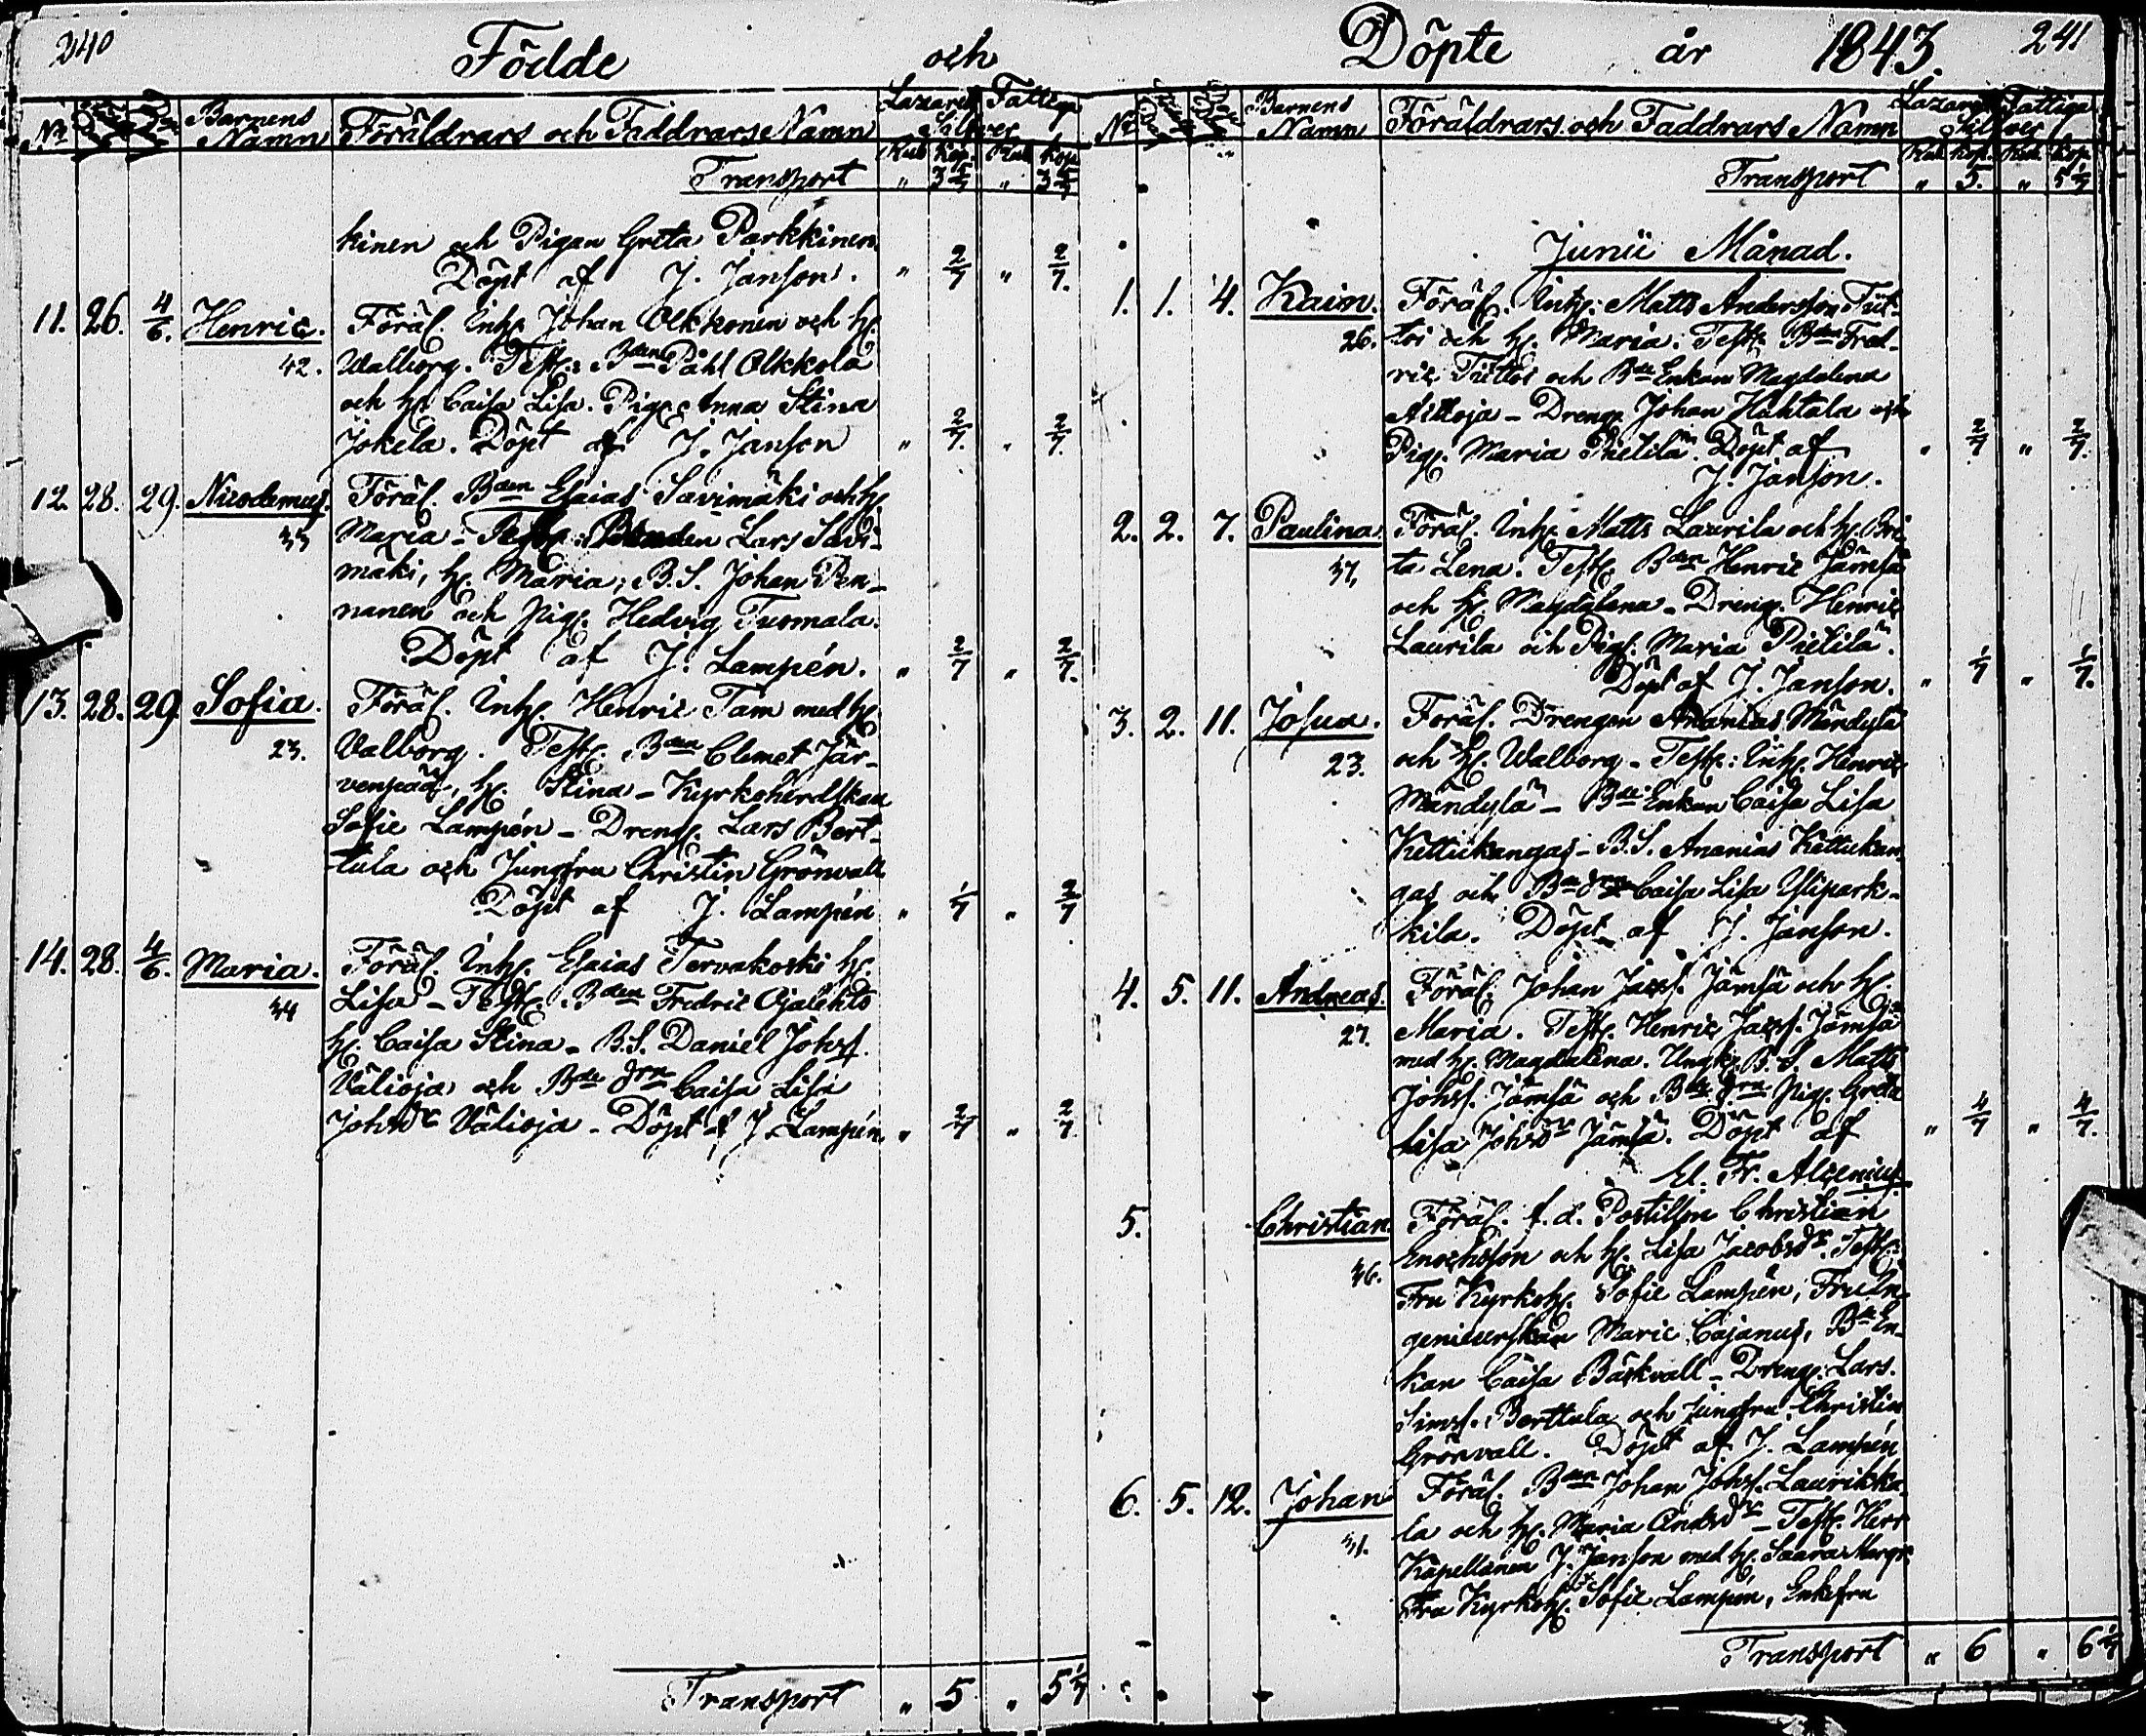 240
Födde och
Nr Barnens Namn Föräldrars och Faddrars Namn Lazaret Fattiga
Silfver
Rub. Kop. Rub. Kop.
Transport " 3 5/7 " 3 5/7
kinen och Pigan Greta Parkkinen.
Döpt af J. Janson. " 2/7 " 2/7.
11. 26. 4/6. Henric. Föräl. Inh. Johan Olkkonen och h.
42. Walborg. Test: Bden Påhl Olkkola
och h. Caisa Lisa. Pig. Anna Stina
Jokela. Döpt af J. Janson " 2/7. " 2/7.
12. 28. 29. Nicodemus. Föräl. Bden Esaias Savimäki och h.
35 Maria - Test: Bonden Lars Savi-
mäki, h. Maria; B.S. Johan Pen-
nanen och pig. Hedvig Tuomala.
Döpt af J. Lampén. " 2/7 " 2/7.
13. 28. 29 Sofia. Föräl. Inh. Henric Tam med h.
23. Valborg. Test. Bden Clemet Jär-
venpää, h. Stina - Kyrkoherdskan
Sofie Lampén - Dreng. Lars Bert-
tula och Jungfru Christin Grönvall
Döpt af J. Lampén " 1/7 " 2/7
14. 28. 4/6. Maria. Föräl. Inh. Esaias Tervakoski h.
34 Lisa - Test. Bden Fredric Ojalehto
h. Caisa Stina - B.S. Daniel Johss.
Välioja och Bde drn Caisa Lisa
Johsdr Välioja - Döpt af J. Lampén. " 2/7 " 2/7
Transport " 5 " 5 1/7
Döpte år 1843. 241
Nr Barnens Namn Föräldrars och Faddrars Namn Lazaret Fattiga
Silfver
Rub. Kop. Rub. Kop.
Transport " 5. " 5 1/7
Junii Månad.
1. 1. 4. Kaim. Föräl. Inh: Matts Andersson Tiit-
26. toi och h. Maria. Test. Bden Fred-
ric Tiittoi och Bde Enkan Magdalena
Aittoja - Dreng. Johan Huhtala och
Pig. Maria Pietilä. Döpt af " 2/7 " 2/7.
J. Janson.
2. 2. 7. Paulina. Föräl. Inh. Matts Laurila och h. Bri-
37, ta Lena. Test. Bden Henric Jämsä
och h. Magdalena - Dreng. Henric
Laurila och Pig. Maria Pietilä.
Döpt af J. Janson. " 1/7 " 1/7.
3. 2. 11. Josua. Föräl. Drengen Ananias Mändylä
23. och h. Walborg - Test: Inh. Henric
Mändylä - Bde Enkan Caisa Lisa
Kettukangas - B.S. Ananias Kettukan-
gas och Bde drn Caisa Lisa Ylipark-
kila. Döpt af J. Janson.
4. 5. 11. Andreas. Föräl. Johan Jacss. Jämsä och h.
27. Maria. Test. Henric Jacss. Jämsä
med h. Magdalena. Ungk. B.S. Matts
Johss. Jämsä och Bde drn pig. Greta
Lisa Johsdr Jämsä. Döpt af " 4/7 " 4/7.
El. Fr. Alcenius.
5. Christian. Föräl. f. d. Postillon Christian
36. Enochsson och h. Lisa Jacobsdr. Test:
Fru Kyrkoh. Sofie Lampén, Fru In-
genieurskan Marie Cajanus, Bde En-
kan Caisa Bäckvall - Dreng. Lars
Simss. Berttula och Jungfru Christin
Grönvall. Döpt af J. Lampén
6. 5. 12. Johan Föräl. Bden Johan Johss. Laurikka-
31. la och h. Maria Andsdr - Test. Herr
Kapellanen J. Janson med h. Saara Margr.
Fru Kyrkoh. Sofie Lampén, Enkefru
Transport " 6 " 6 1/7